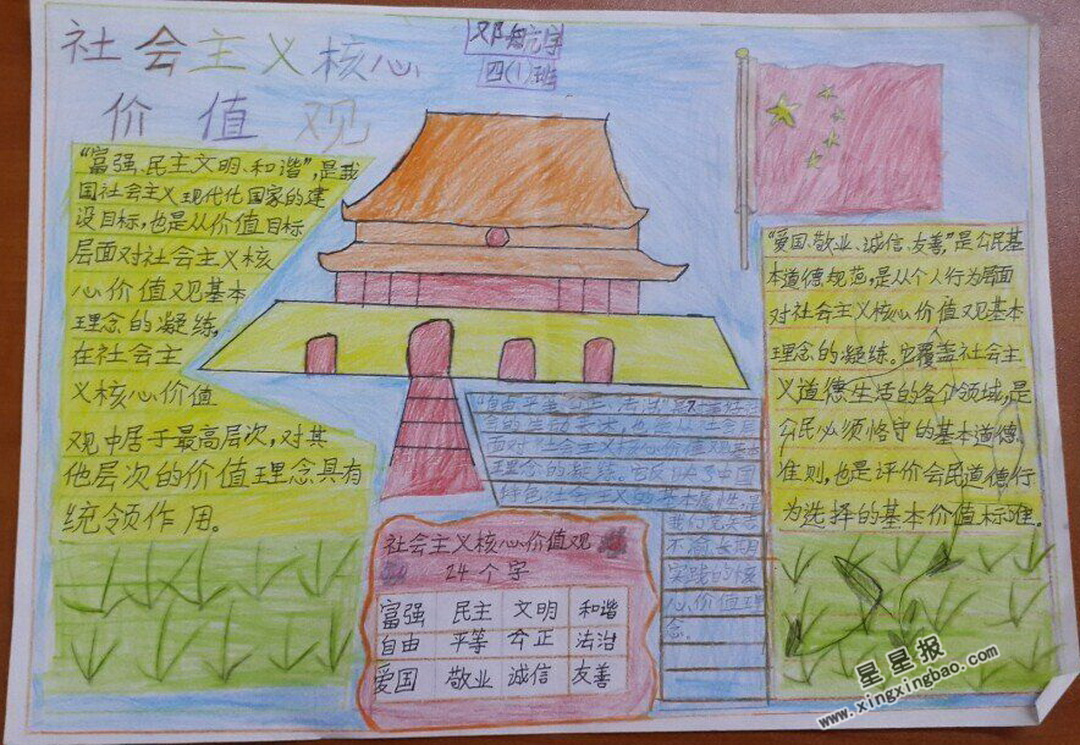 社会主义核心
价值观
邓知元宇
四(1)班
"富强、民主文明、和谐",是我
国社会主义现代化国家的建
设目标,也是从价值目标
层面对社会主义核
心价值观基本
理念的凝练,
在社会主
义核心价值
观中居于最高层次,对其
他层次的价值理念具有
统领作用。
"自由平等公正、法治"是
会的 也是从社会层
面对社会主义核心价值观基本
理念的凝练。它反映了中国
特色社会主义的基本属性,是
我们党矢志
不渝长期
实践的核
心价值理
念。
社会主义核心价值观
24个字
富强 民主 文明 和谐
自由 平等 公正 法治
爱国 敬业 诚信 友善
"爱国、敬业、诚信、友善,"是公民基
本道德规范,是从个人行为层面
对社会主义核心价值观基本
理念的凝练。它覆盖社会主
义道德生活的各个领域,是
公民必须恪守的基本道德
准则,也是评价会民道德行
为选择的基本价值标准。
星星报
www.xingxingbao.com